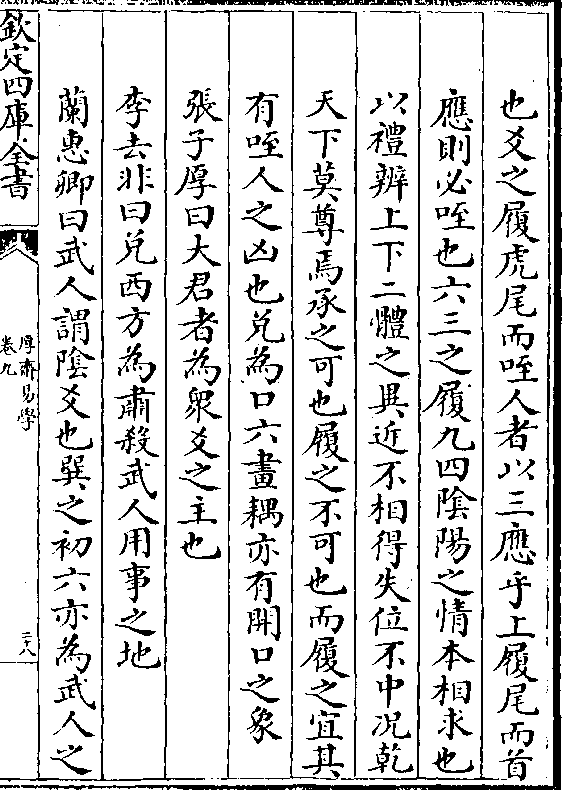 也爻之履虎尾而咥人者以三應乎上履尾而首
應則必咥也六三之履九四陰陽之情本相求也
以禮辨上下二體之異近不相得失位不中况乾
天下莫尊焉承之可也履之不可也而履之宜其
有咥人之凶也兌為口六畫耦亦有開口之象
張子厚曰大君者為衆爻之主也
李去非曰兌西方為肅殺武人用事之地
蘭惠卿曰武人謂陰爻也巽之初六亦為武人之
欽定四庫全書
厚齋易學
卷九
二十八